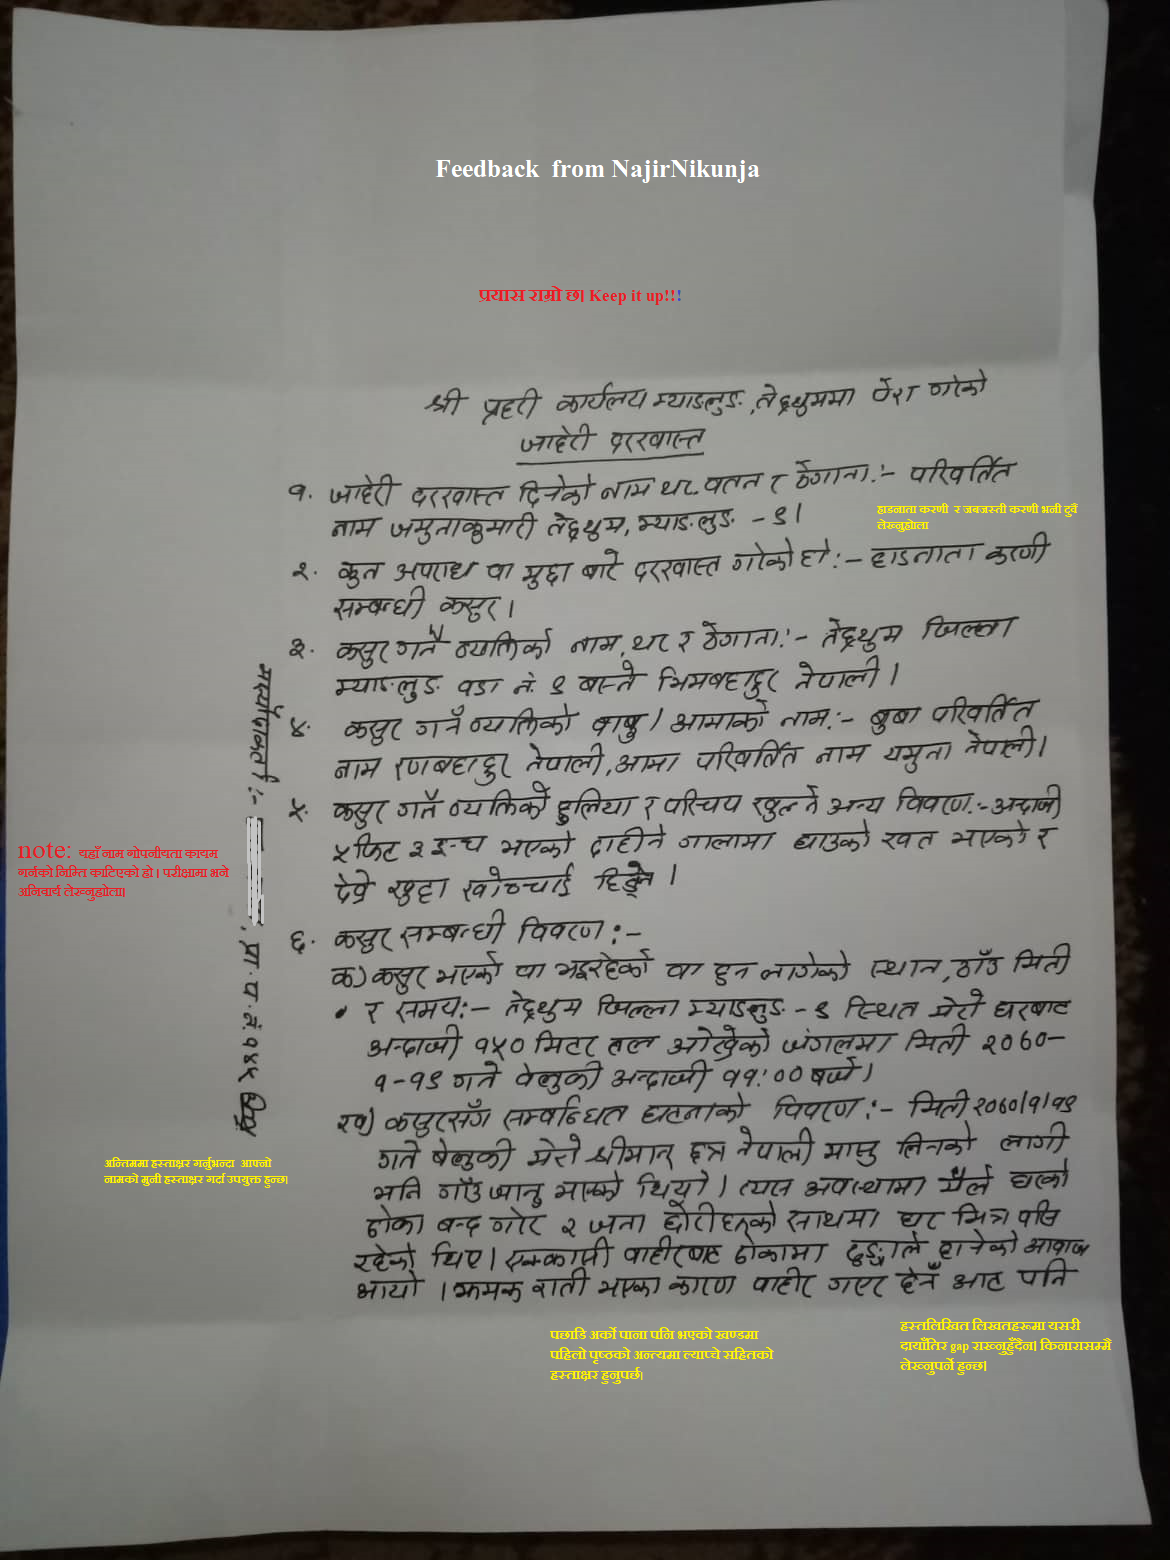 Feedback from NajirNikunja
प्रयास राम्रो छ। Keep it up!!!
श्री प्रहरी कार्यलय म्याङलुङ, तेह्रथुममा पेश गरेको
जाहेरी दरखास्त
१. जाहेरी दरखास्त दिनेको नाम थर. वतन र ठेगाना:- परिवर्तित
नाम जमुनाकुमारी तेह्रथुम, म्याङलुङ - ९।
हाडनाता करणी र जबजस्ती करणी भनी दुवै
लेख्नुहोला
२. कुन अपराध वा मुद्दा बारे दरखास्त गरेको हो:- हाडनाता करणी
सम्बन्धी कसुर।
३. कसुर गर्ने व्यक्तिको नाम, थर र ठेगाना:- तेह्रथुम जिल्ला
म्याङलुङ वडा नं. ९ बस्ने भिमबहादुर नेपाली।
४. कसुर गर्ने व्यक्तिको बाबु। आमाको नाम:- बुबा परिवर्तित
नाम रणबहादुर नेपाली, आमा परिवर्तित नाम यमुना नेपाली।
५. कसुर गर्ने व्यक्तिको हुलिया र परिचय खुल्ने अन्य विवरण:- अन्दाजी
५ फिट ३ इन्च भएको दाहीने गालामा घाउको खत भएको र
देब्रे खुट्टा खोच्चाई हिड्ने।
६. कसुर सम्बन्धी विवरण:-
क) कसुर भएको वा भइरहेको वा हुन लागेको स्थान, ठाँउ मिती
र समय:- तेह्रथुम जिल्ला म्याङलुङ - ९ स्थित मेरो घरबाट
अन्दाजी १५० मिटर तल ओखेको जंगलमा मिती २०७०-
१-१९ गते वेलुकी अन्दाजी ११:०० बजे।
ख) कसुरसँग सम्बन्धित घटनाको विवरण:- मिती २०७०/१/१९
गते बेलुकी मेरो श्रीमान् छत्र नेपाली मासु लिनको लागी
भनि गाँउ जानु भएको थियो। त्यस अवस्थामा मैले घरको
ढोका बन्द गरेर २ जना छोरीहरुको साथमा घर भित्र बसि
रहेको थिए। एक्कासी बाहीरबाट ढोकामा ढुङ्गाले हानेको आवाज
आयो। झमक्क राती भएका कारण बाहीर गएर हेर्ने आट पनि
मस्यौदाकर्ता:- , प्रा. प. नं. १४५
note: यहाँ नाम गोपनीयता कायम
गर्नको निम्ति काटिएको हो। परीक्षामा भने
अनिवार्य लेख्नुहोला।
अन्तिममा हस्ताक्षर गर्नुभन्दा आफ्नो
नामको मुनी हस्ताक्षर गर्दा उपयुक्त हुन्छ।
पछाडि अर्को पाना पनि भएको खण्डमा
पहिलो पृष्ठको अन्त्यमा ल्याप्चे सहितको
हस्ताक्षर हुनुपर्छ।
हस्तलिखित लिखतहरूमा यसरी
दायाँतिर gap राख्नुहुँदैन। किनारासम्मै
लेख्नुपर्ने हुन्छ।